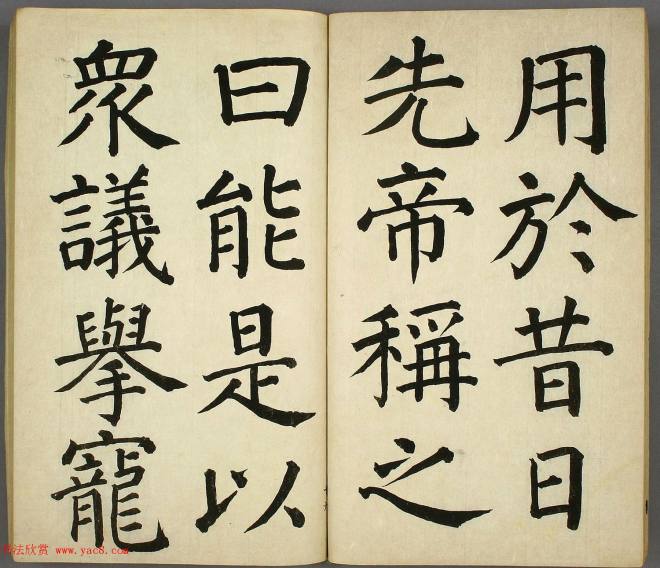 用於昔日
先帝稱之
曰能是以
衆議擧寵
书法欣赏 www.yac8.com